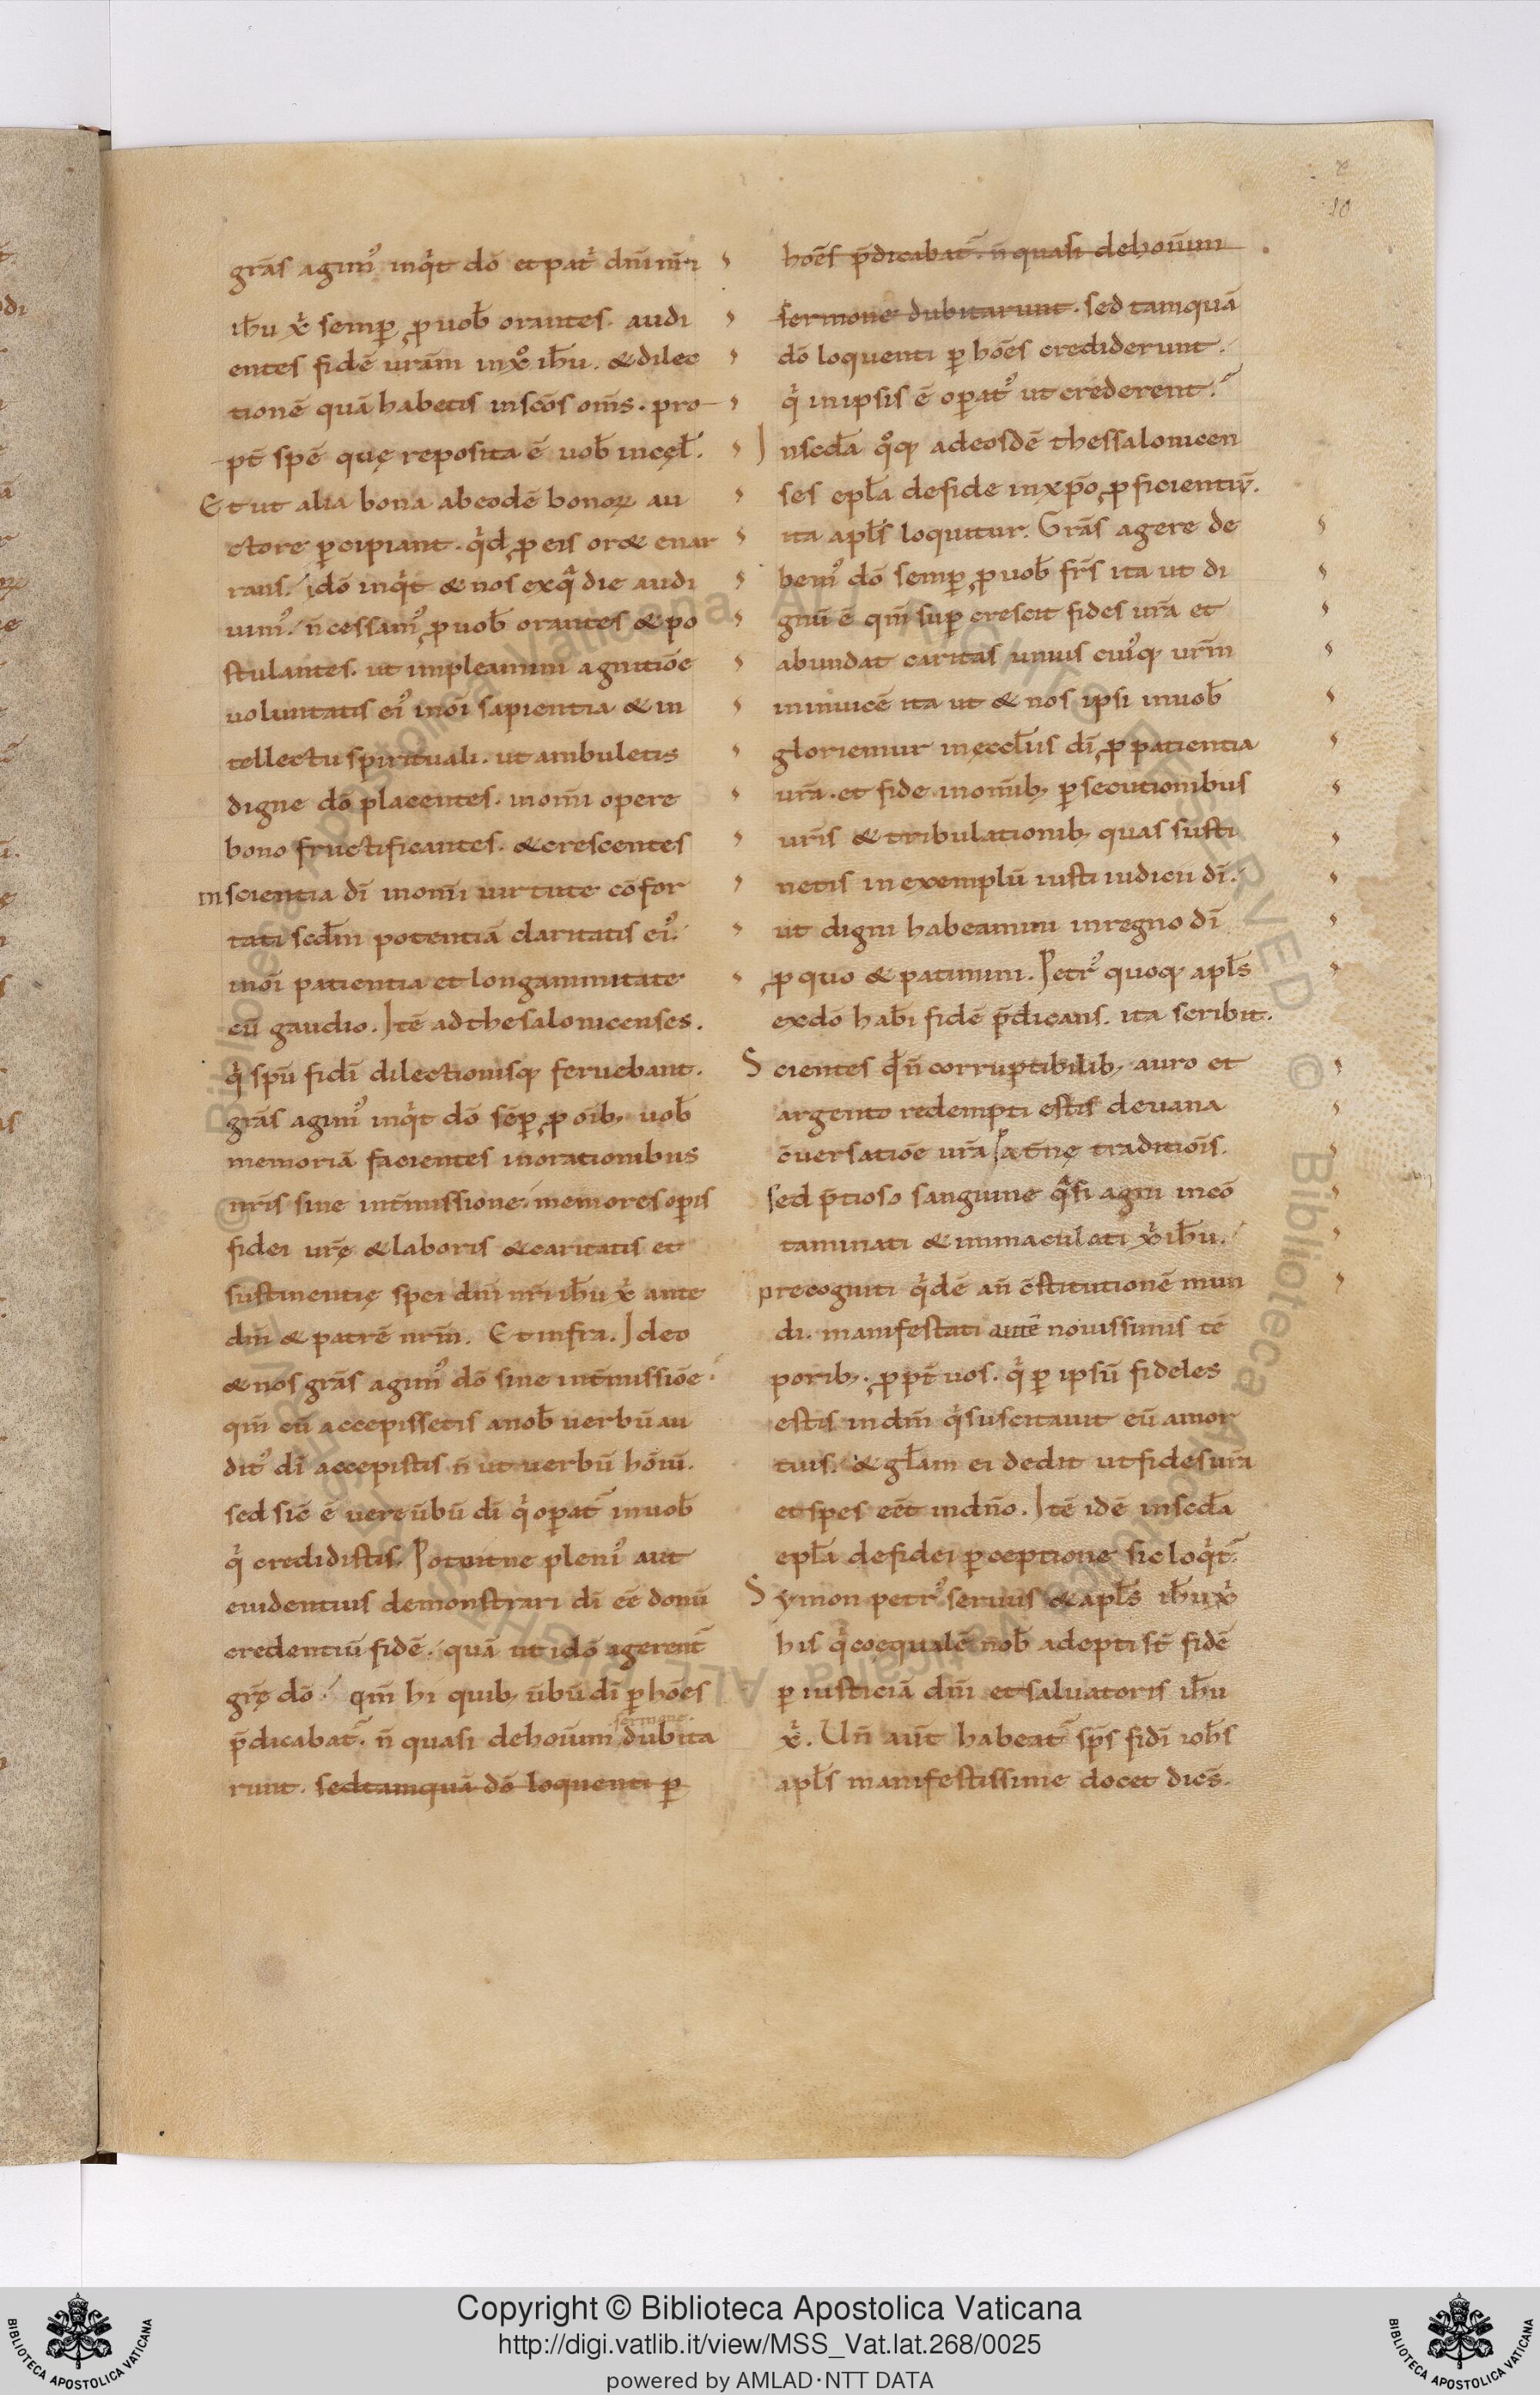 grās agim᾽ inq̇t dō et patˈ dn̄i nr̄i
ih̄u xˈ semꝑ ꝓ uob̄ orantes. audi
entes fidē urām in xº ih̄u. & dilec
tionē quā habetis in scōs om̄s. pro
pt̄ spē quę reposita ē uob̄ in cęl̄.
Et ut alia bona ab eodē bonoꝝ au
ctore ꝑcipiant. q̇d ꝓ eis or& enar
rans. idō inq̇t & nos ex qᵃ die audi
uim᾽. n̄ cessam᾽ ꝓ uob̄ orantes & po
stulantes. ut impleamini agnitiōe
uoluntatis ei᾽ in ōi sapientia & in
tellectu spirituali. ut ambuletis
digne dō placentes. in om̄i opere
bono fructificantes. & crescentes
in scientia dī in om̄i uirtute cōfor
tati scdm̄ potentiā claritatis ei᾽.
in ōi patientia et longanimitate
cū gaudio. Itē ad thesalonicenses.
q̇ spū fidī dilectionisqꝫ feruebant.
grās agim᾽ inq̇t dō sēꝑ ꝓ oībꝫ uob̄
memoriā facientes in orationibus
nr̄is sine int̄missione. memores oꝑis
fidei ur̄ę & laboris & caritatis et
sustinentię spei dn̄i nr̄i ih̄u xˈ ante
dm̄ & patrē nrm̄. Et infra. Ideo
& nos grās agim᾽ dō sine int̄missiōe
qm̄ cū accepissetis a nob̄ uerbū au
dit᾽ dī accepistis n̄ ut uerbū hōiū.
sed sic ē uere ūbū dī q̇ oꝑat᷑ in uob̄
q̇ credidistis. Potuitne pleni᾽ aut
euidentius demonstrari dī eē donū
credentiū fidē. quā ut idō agerent᷑
gr̄ę dō. qm̄ hi quibꝫ ūbū dī ꝑ hōes
p̄dicabat᷑. n̄ quasi de hoiūm sermone. dubita
runt. sed tamquā dō loquenti ꝑ
hoēs p̄dicabat᷑. n̄ quasi de hoiūm
sermone dubitarunt. sed tamquā
dō loquenti ꝑ hōes crediderunt.
q̇ in ipsis ē oꝑat᾽ ut crederent.
In scd̄a qºqꝫ ad eosdē thessalonicen
ses epl̄a de fide in xp̄o ꝓficientiū.
ita apl̄s loquitur. Grās agere de
bem᾽ dō semꝑ ꝓ uob̄ fr̄s ita ut di
gnū ē qm̄ suꝑcrescit fides ur̄a et
abundat caritas unius cui᾽qꝫ urm̄
in inuicē ita ut & nos ipsi in uob̄
gloriemur in ęccl̄iis dī ꝓ patientia
ur̄a. et fide in om̄ibꝫ ꝑsecutionibus
ur̄is & tribulationibꝫ quas susti
netis in exemplū iusti iudicii dī.
ut digni habeamini in regno dī
ꝓ quo & patimini. Petr᾽ quoqꝫ apl̄s
ex dō hab̄i fidē p̄dicans. ita scribit.
Scientes qd̄ n̄ corruptibilibꝫ auro et
argento redempti estis de uana
c̄uersatiōe ur̄a pat̄nę traditiōis.
sed p̄tioso sanguine qᵃsi agni incō
taminati & immaculati xˈ ih̄u.
precogniti q̇dē an̄ c̄stitutionē mun
di. manifestati autē nouissimis tē
poribꝫ. ꝓpt̄ uos. q̇ ꝑ ipsū fideles
estis in dm̄ q̇ suscitauit eū a mor
tuis. & gl̄am ei dedit ut fides ur̄a
et spes eēt in dn̄o. Itē idē in scd̄a
epl̄a de fidei ꝑceptione sic loq̇t᷑.
Symon petr᾽ seruus & apl̄s ih̄u xˈ
his q̇ coęqualē nob̄ adepti st̄ fidē
ꝑ iusticiā dn̄i et saluatoris ih̄u
xˈ. Un̄ aūt habeat᷑ sp̄s fidī ioh̄s
apl̄s manifestissime docet dicēs.
Copyright © Biblioteca Apostolica Vaticana
http://digi.vatlib.it/view/MSS_Vat.lat.268/0025
powered by AMLAD·NTT DATA